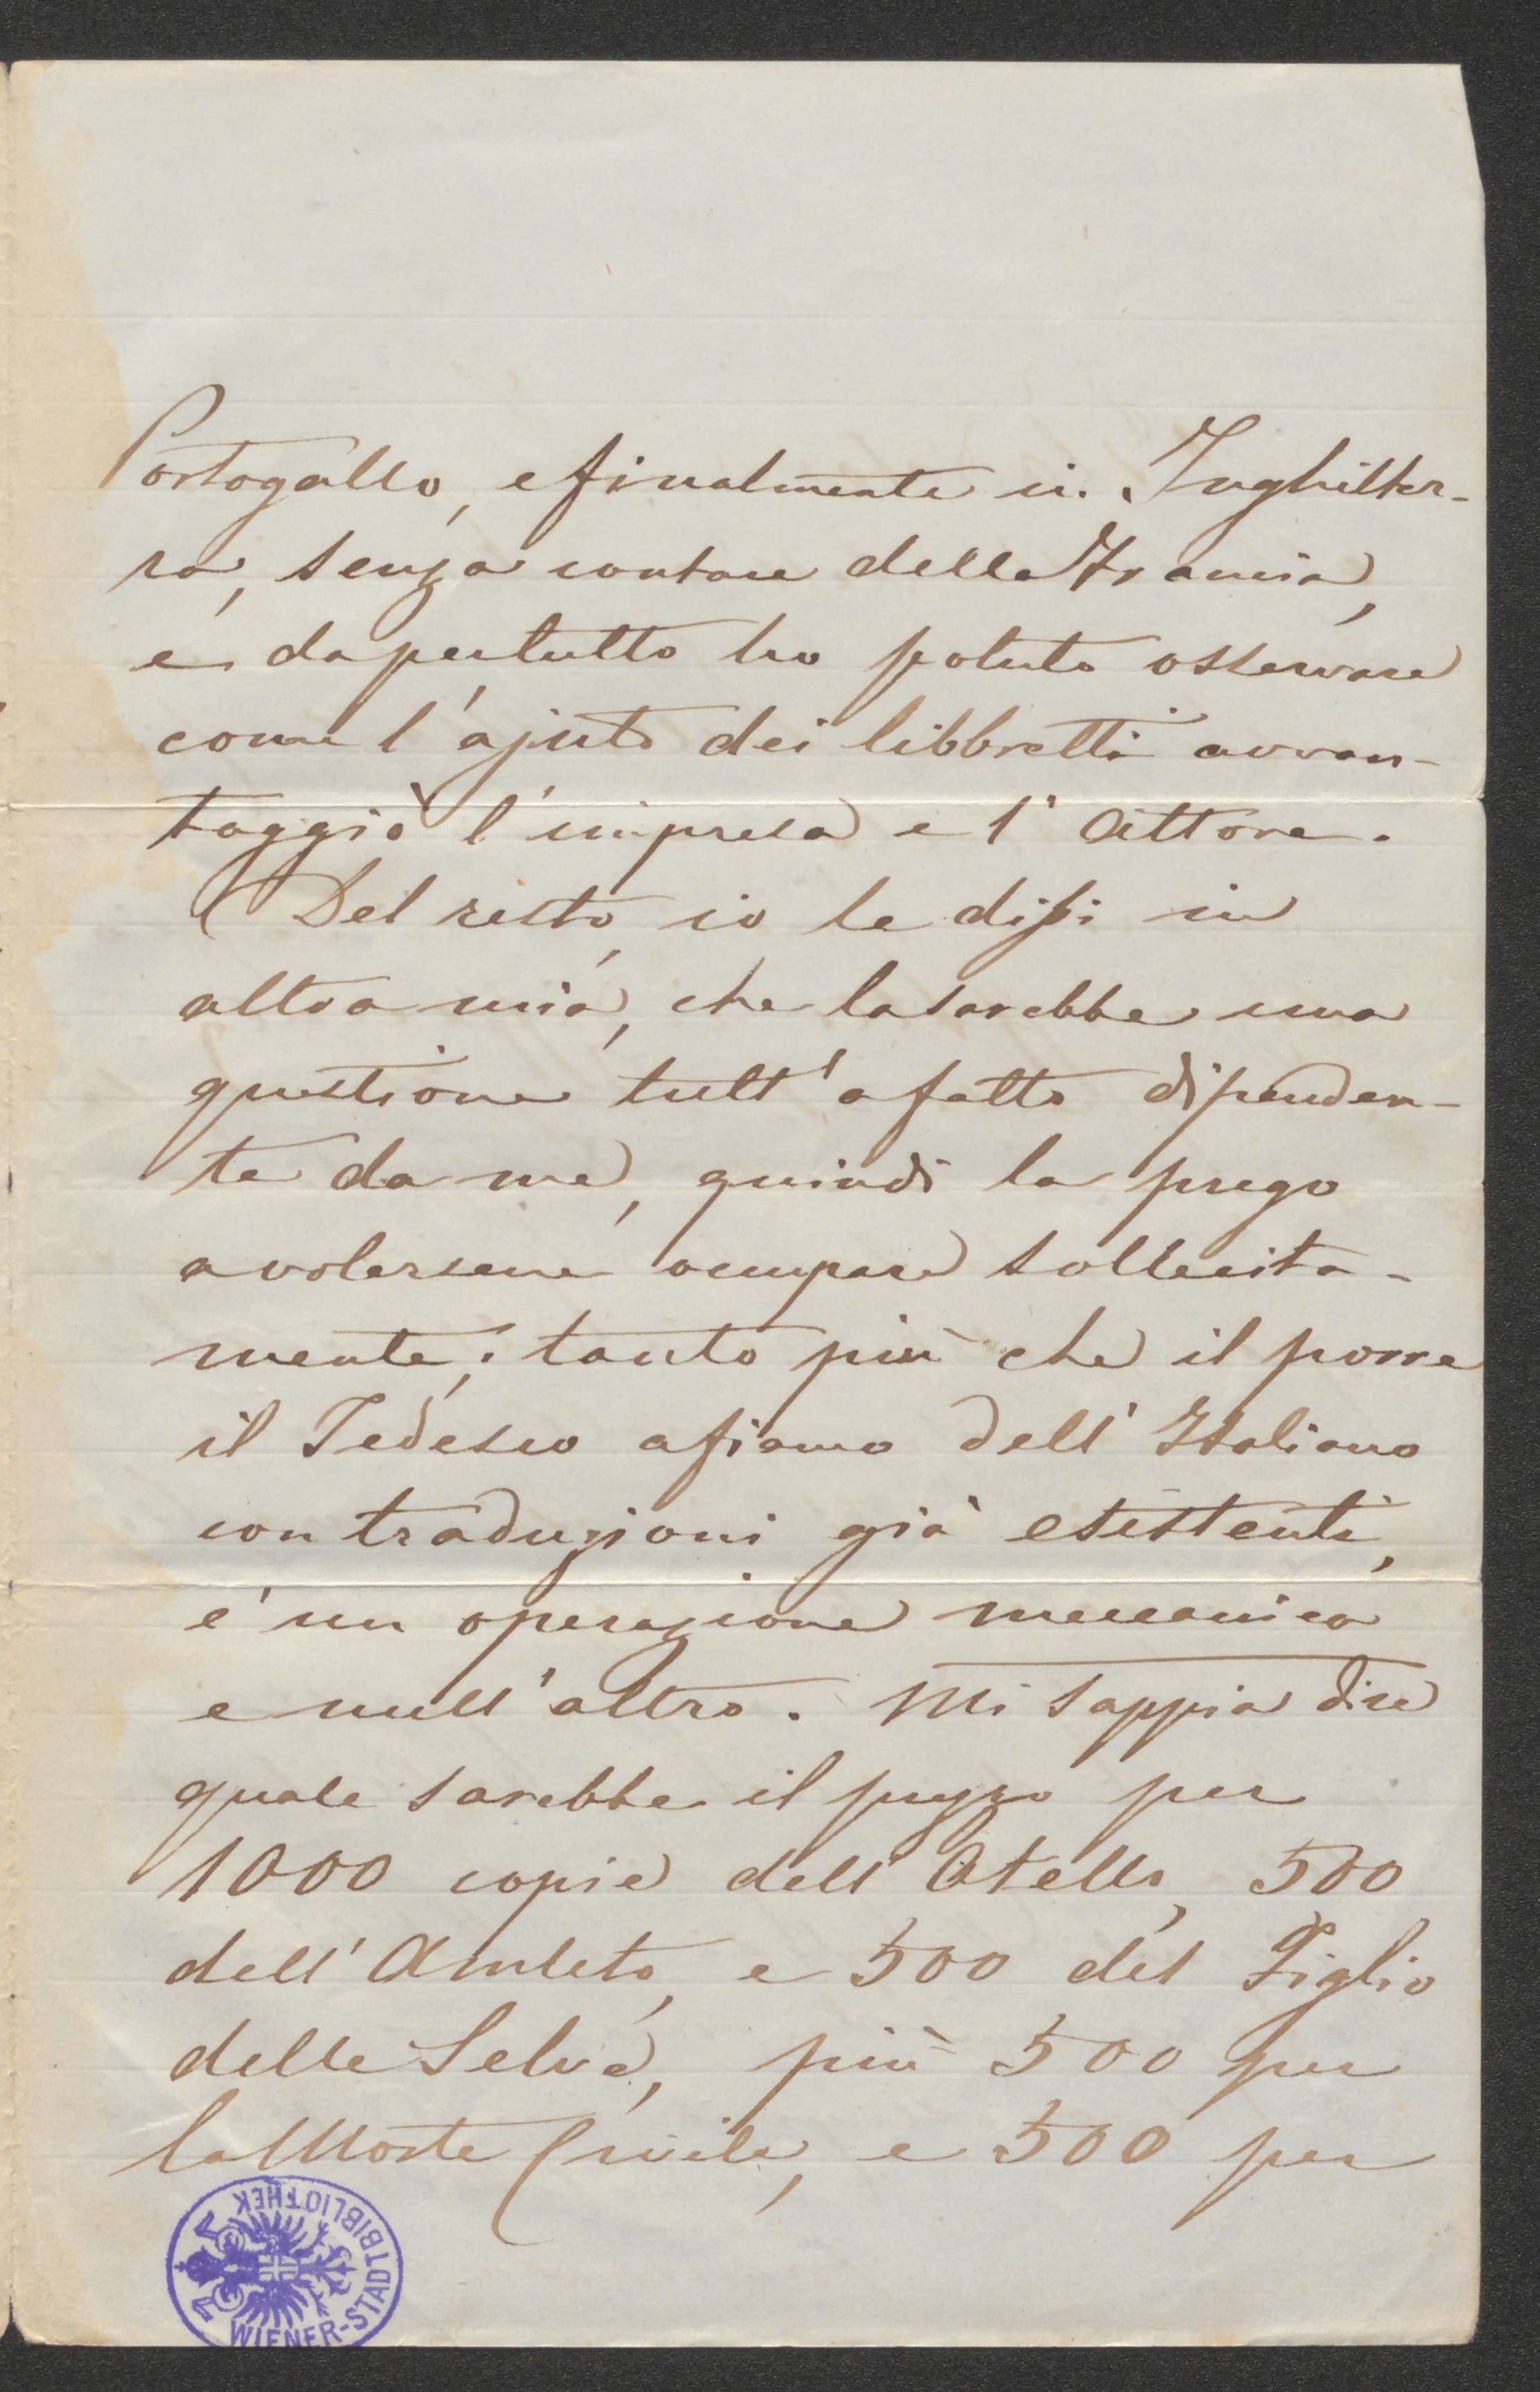 Portogallo, e finalmente in Inghilter-
ra, senza contare della Francia,
e dapertutto ho potuto osservare
come l'ajuto dei libbretti avvan-
taggiò l'impresa e l'Attore.
Del resto, io le dissi in
altra mia, che la sarebbe una
questione tutt'afatto dipenden-
te da me, quindi la prego
a volersene occupare sollecita-
mente; tanto più che il porre
il Tedesco afianco dell'Italiano
con traduzioni già esistenti,
e' un operazione meccanica
e null'altro. Mi sappia dire
quale sarebbe il prezzo per
1000 copie dell'Otello, 500
dell'Amleto, e 500 del Figlio
delle Selve, più 500 per
la Morte Civile, e 500 per
WIENER-STADTBIBLIOTHEK